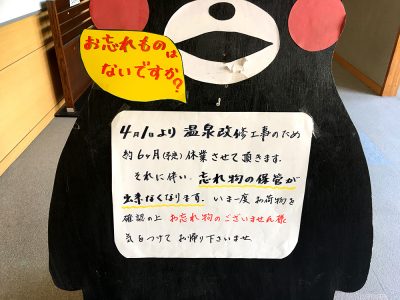 お忘れものは
ないですか?
4月1日より 温泉改修工事のため
約6ヶ月(予定)休業させて頂きます.
それに伴い、忘れ物の保管が
出来なくなります. いま一度 お荷物を
確認の上 お忘れ物のございません様
気をつけて お帰り下さいませ